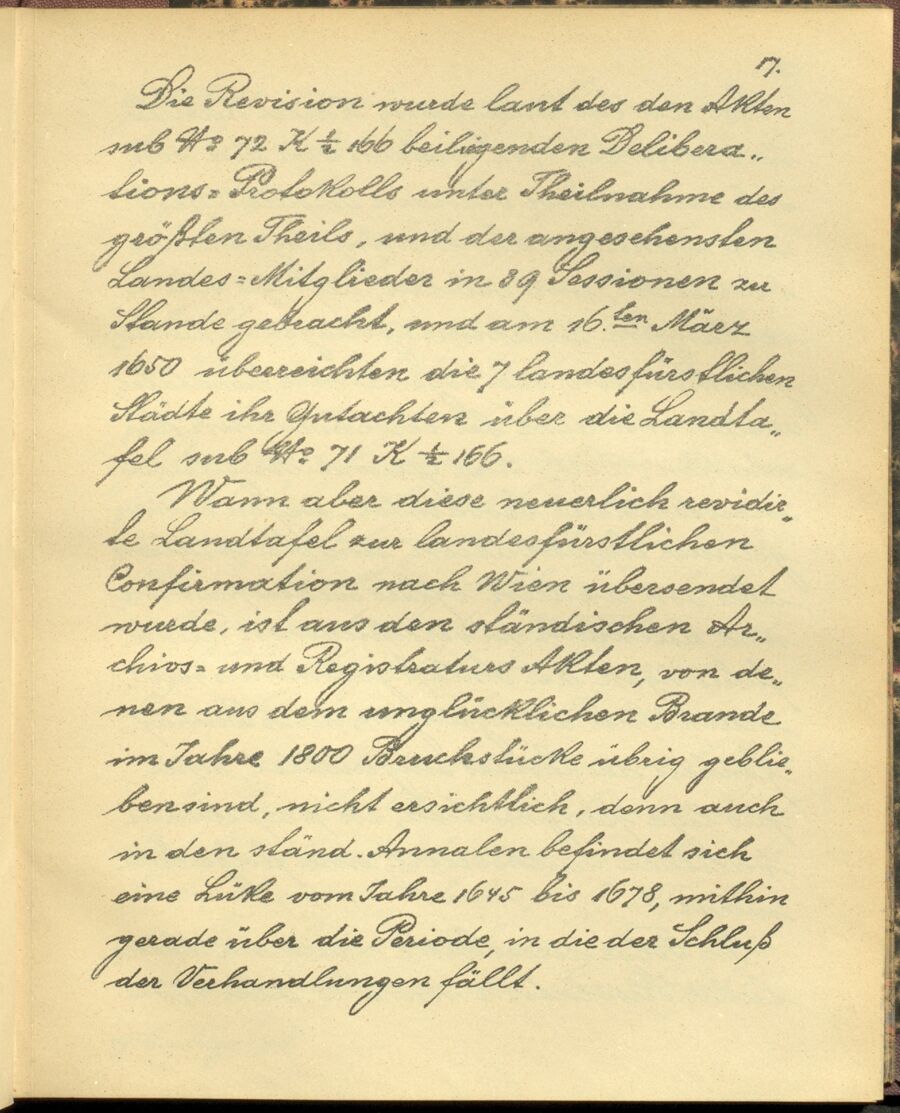 17.
Die Revision wurde laut des den Akten
sub No 72 K ½ 166 beiliegenden Delibera„
tions=Protokolls unter Theilnahme des
größten Theils, und der angesehensten
Landes=Mitglieder in 89 Sessionen zu
Stande gebracht, und am 16.ten März
1650 überreichten die 7 landesfürstlichen
Städte ihr Gutachten über die Landta„
fel sub No 71 K ½ 166.
Wann aber diese neuerlich revidir„
te Landtafel zur landesfürstlichen
Confirmation nach Wien übersendet
wurde, ist aus den ständischen Ar„
chivs= und Registraturs Akten, von de„
nen aus dem unglücklichen Brande
im Jahre 1800 Bruchstücke übrig geblie„
ben sind, nicht ersichtlich, denn auch
in den ständ. Annalen befindet sich
eine Lüke vom Jahre 1645 bis 1678, mithin
gerade über die Periode, in die der Schluß
der Verhandlungen fällt.